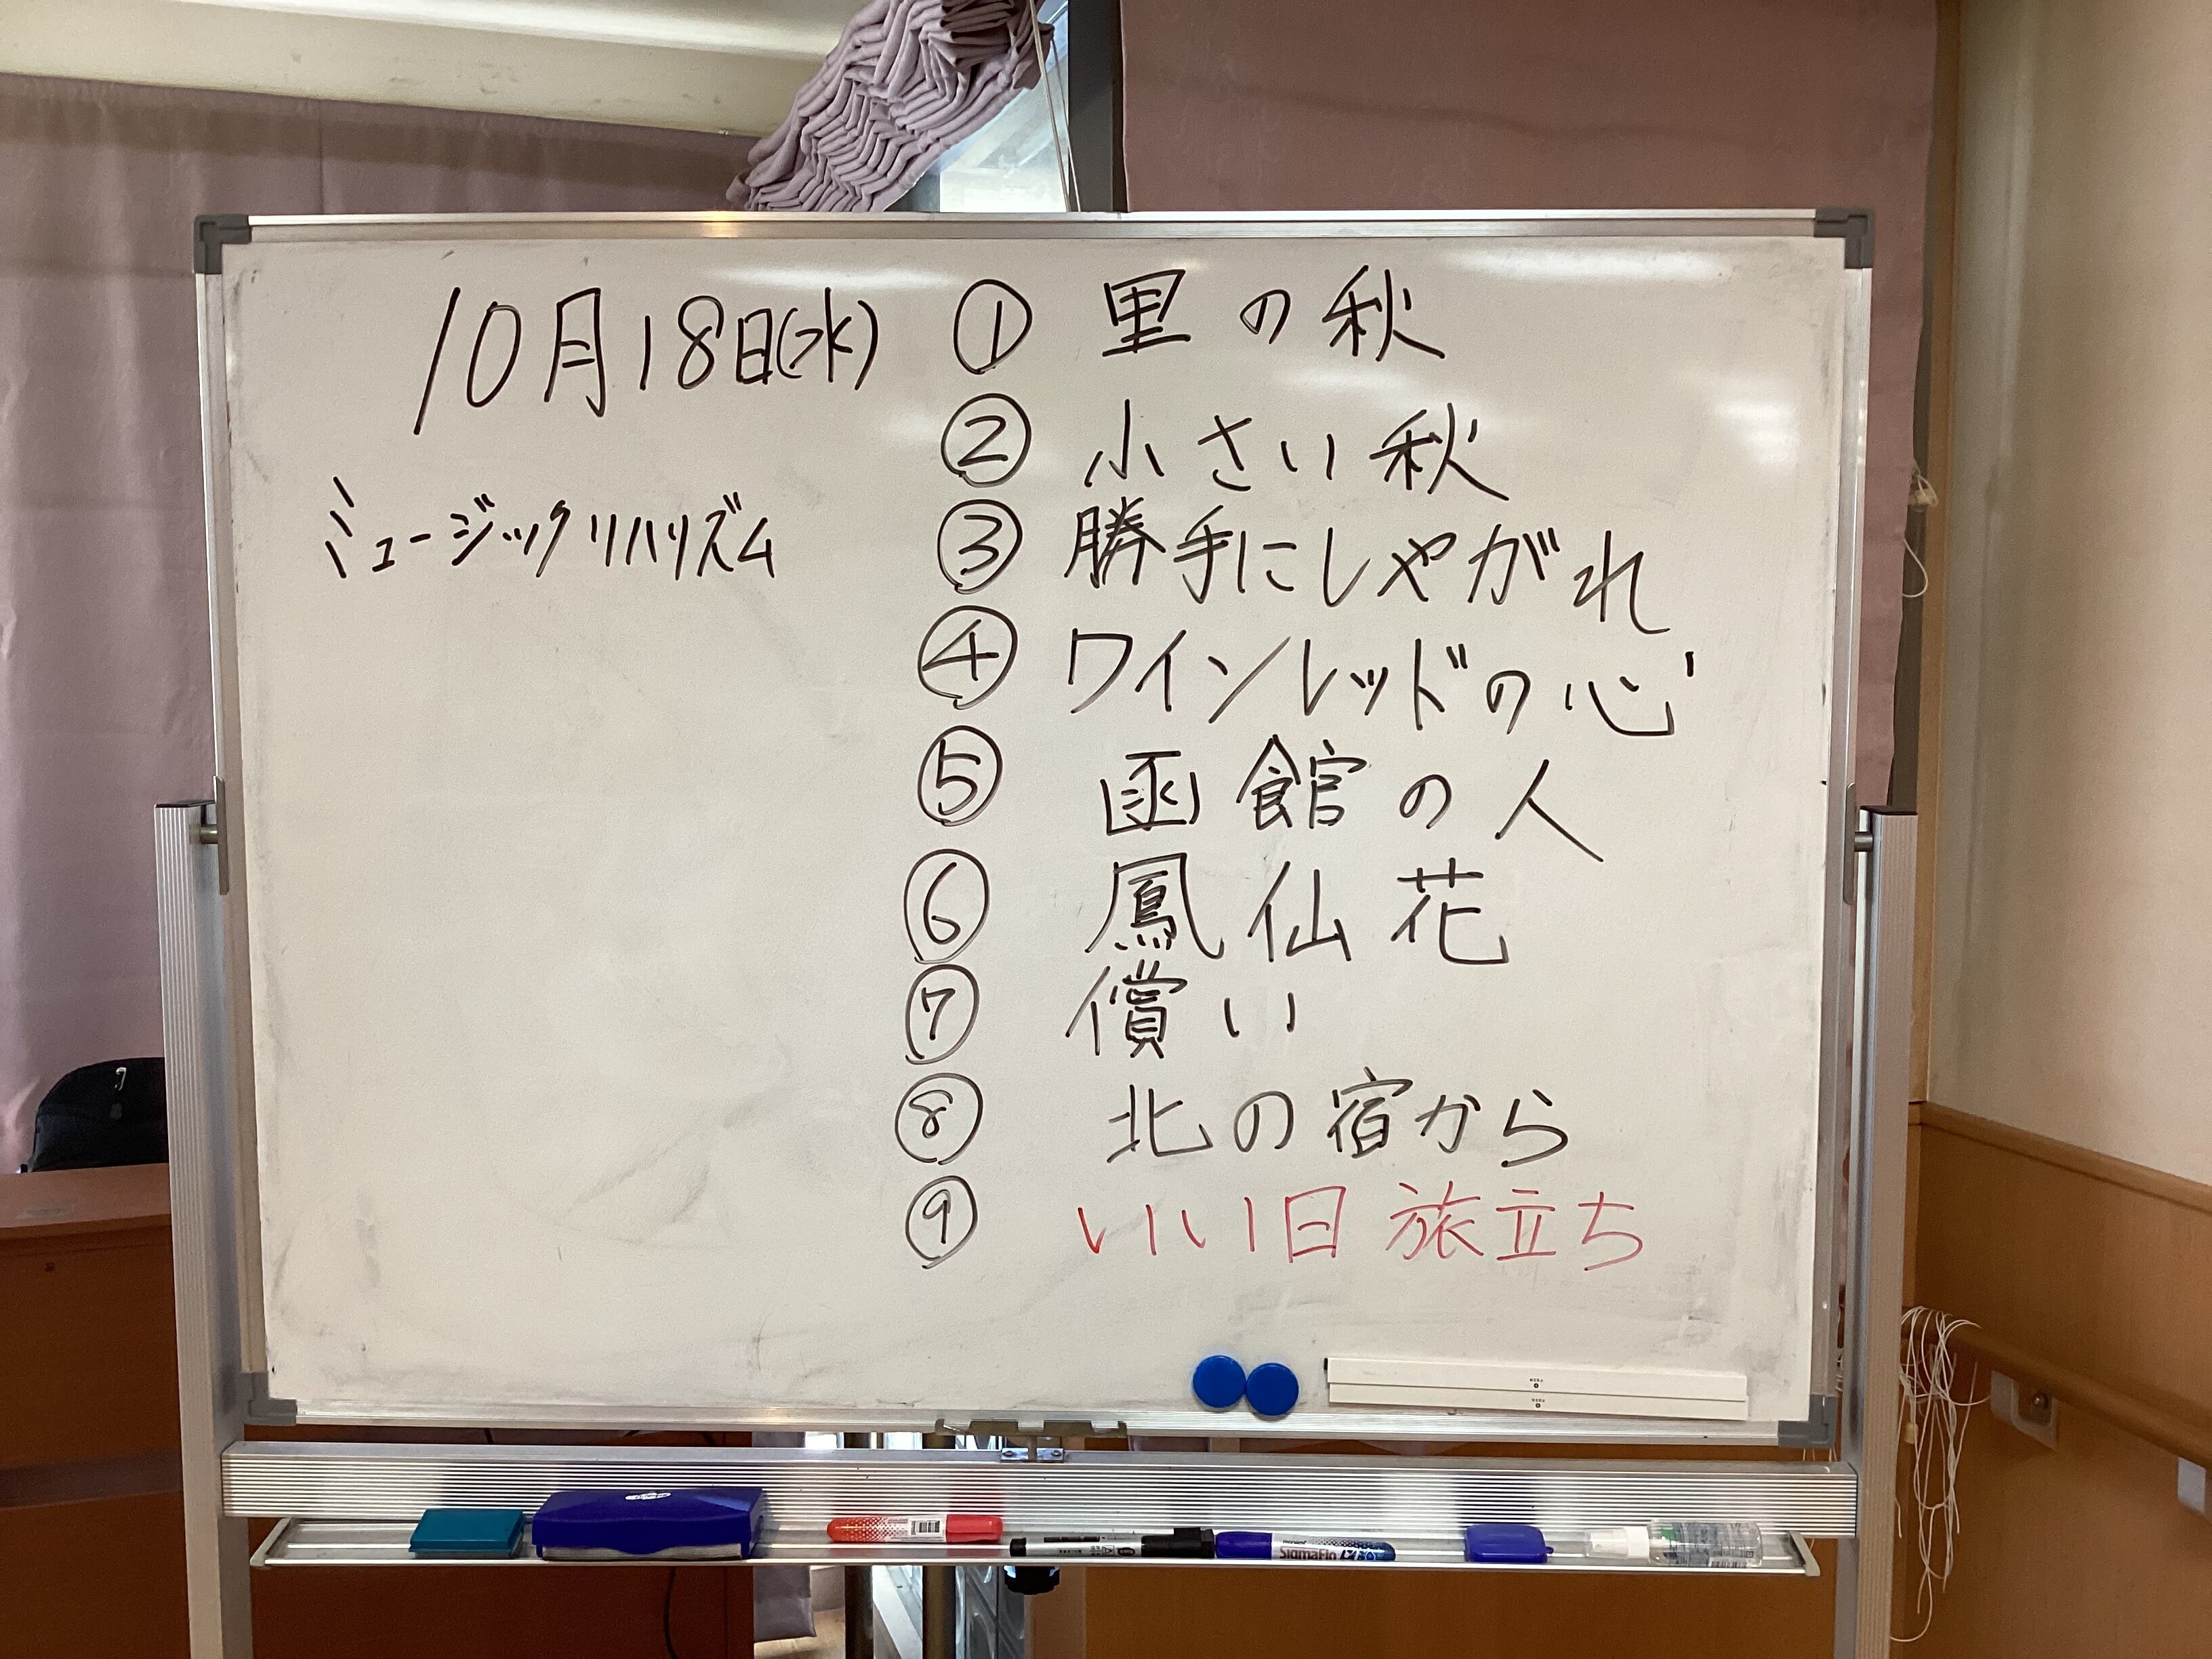 10月18日(水)
ミュージックリハリズム
① 里の秋
② 小さい秋
③ 勝手にしやがれ
④ ワインレッドの心
⑤ 函館の人
⑥ 鳳仙花
⑦ 償い
⑧ 北の宿から
⑨ いい日旅立ち
SigmaFlo